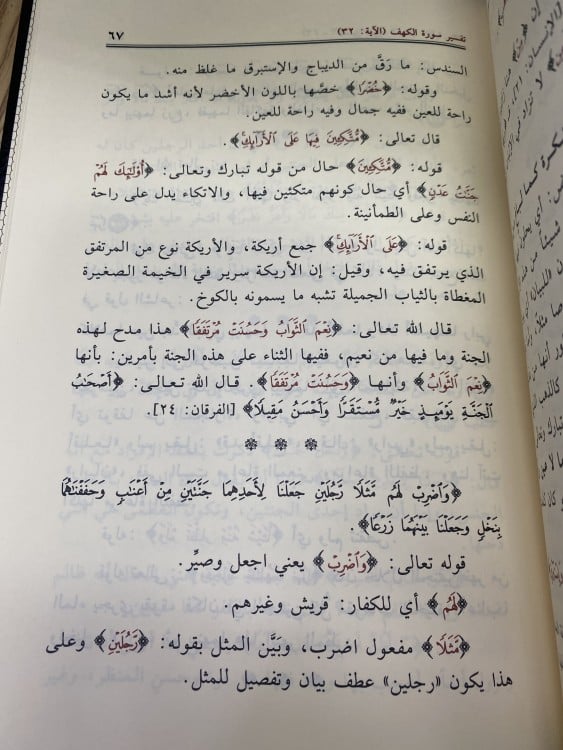 تفسير سورة الكهف (الآية: ٣٢) ٦٧
السندس: ما رَقَّ من الديباج والإستبرق ما غلظ منه.
وقوله: ﴿خُضْرًا﴾ خصَّها باللون الأخضر لأنه أشد ما يكون
راحة للعين ففيه جمال وفيه راحة للعين.
قال تعالى: ﴿مُّتَّكِـِٔينَ فِيهَا عَلَى ٱلْأَرَآئِكِ﴾.
قوله: ﴿مُّتَّكِـِٔينَ﴾ حال من قوله تبارك وتعالى: ﴿أُو۟لَـٰٓئِكَ لَهُمْ
جَنَّـٰتُ عَدْنٍ﴾ أي حال كونهم متكئين فيها، والاتكاء يدل على راحة
النفس وعلى الطمأنينة.
قوله: ﴿عَلَى ٱلْأَرَآئِكِ﴾ جمع أريكة، والأريكة نوع من المرتفق
الذي يرتفق فيه، وقيل: إن الأريكة سرير في الخيمة الصغيرة
المغطاة بالثياب الجميلة تشبه ما يسمونه بالكوخ.
قال الله تعالى: ﴿نِعْمَ ٱلثَّوَابُ وَحَسُنَتْ مُرْتَفَقًا﴾ هذا مدح لهذه
الجنة وما فيها من نعيم، ففيها الثناء على هذه الجنة بأمرين: بأنها
﴿نِعْمَ ٱلثَّوَابُ﴾ وأنـها ﴿وَحَسُنَتْ مُرْتَفَقًا﴾. قال الله تعالى: ﴿أَصْحَـٰبُ
ٱلْجَنَّةِ يَوْمَئِذٍ خَيْرٌ مُّسْتَقَرًّا وَأَحْسَنُ مَقِيلًا﴾ [الفرقان: ٢٤].
* * *
﴿وَٱضْرِبْ لَهُم مَّثَلًا رَّجُلَيْنِ جَعَلْنَا لِأَحَدِهِمَا جَنَّتَيْنِ مِنْ أَعْنَـٰبٍ وَحَفَفْنَـٰهُمَا
بِنَخْلٍ وَجَعَلْنَا بَيْنَهُمَا زَرْعًا﴾.
قوله تعالى: ﴿وَٱضْرِبْ﴾ يعني اجعل وصيِّر.
﴿لَهُم﴾ أي للكفار: قريش وغيرهم.
﴿مَّثَلًا﴾ مفعول اضرب، وبَيَّن المثل بقوله: ﴿رَّجُلَيْنِ﴾ وعلى
هذا يكون «رجلين» عطف بيان وتفصيل للمثل.